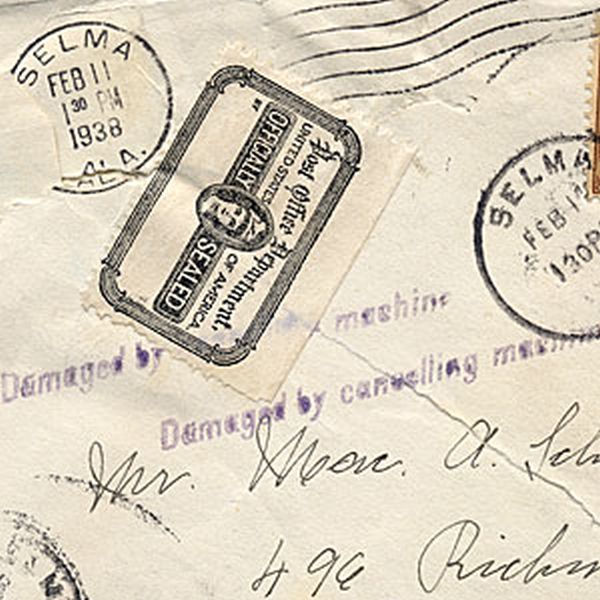 SELMA
FEB 11
1 30 PM
1938
ALA.
Post Office Department,
UNITED STATES OF AMERICA
BY
OFFICIALLY SEALED
SELMA
FEB
130P
machine
Damaged by
Damaged by cancelling machine
Mr. A.
496